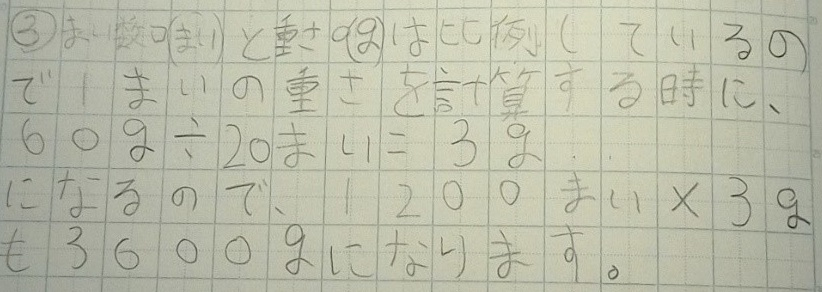 ③まい数(まい)と重さ(g)は比例しているの
で1まいの重さを計算する時に、
60g÷20まい=3g
になるので、1200まい×3g
も3600gになります。